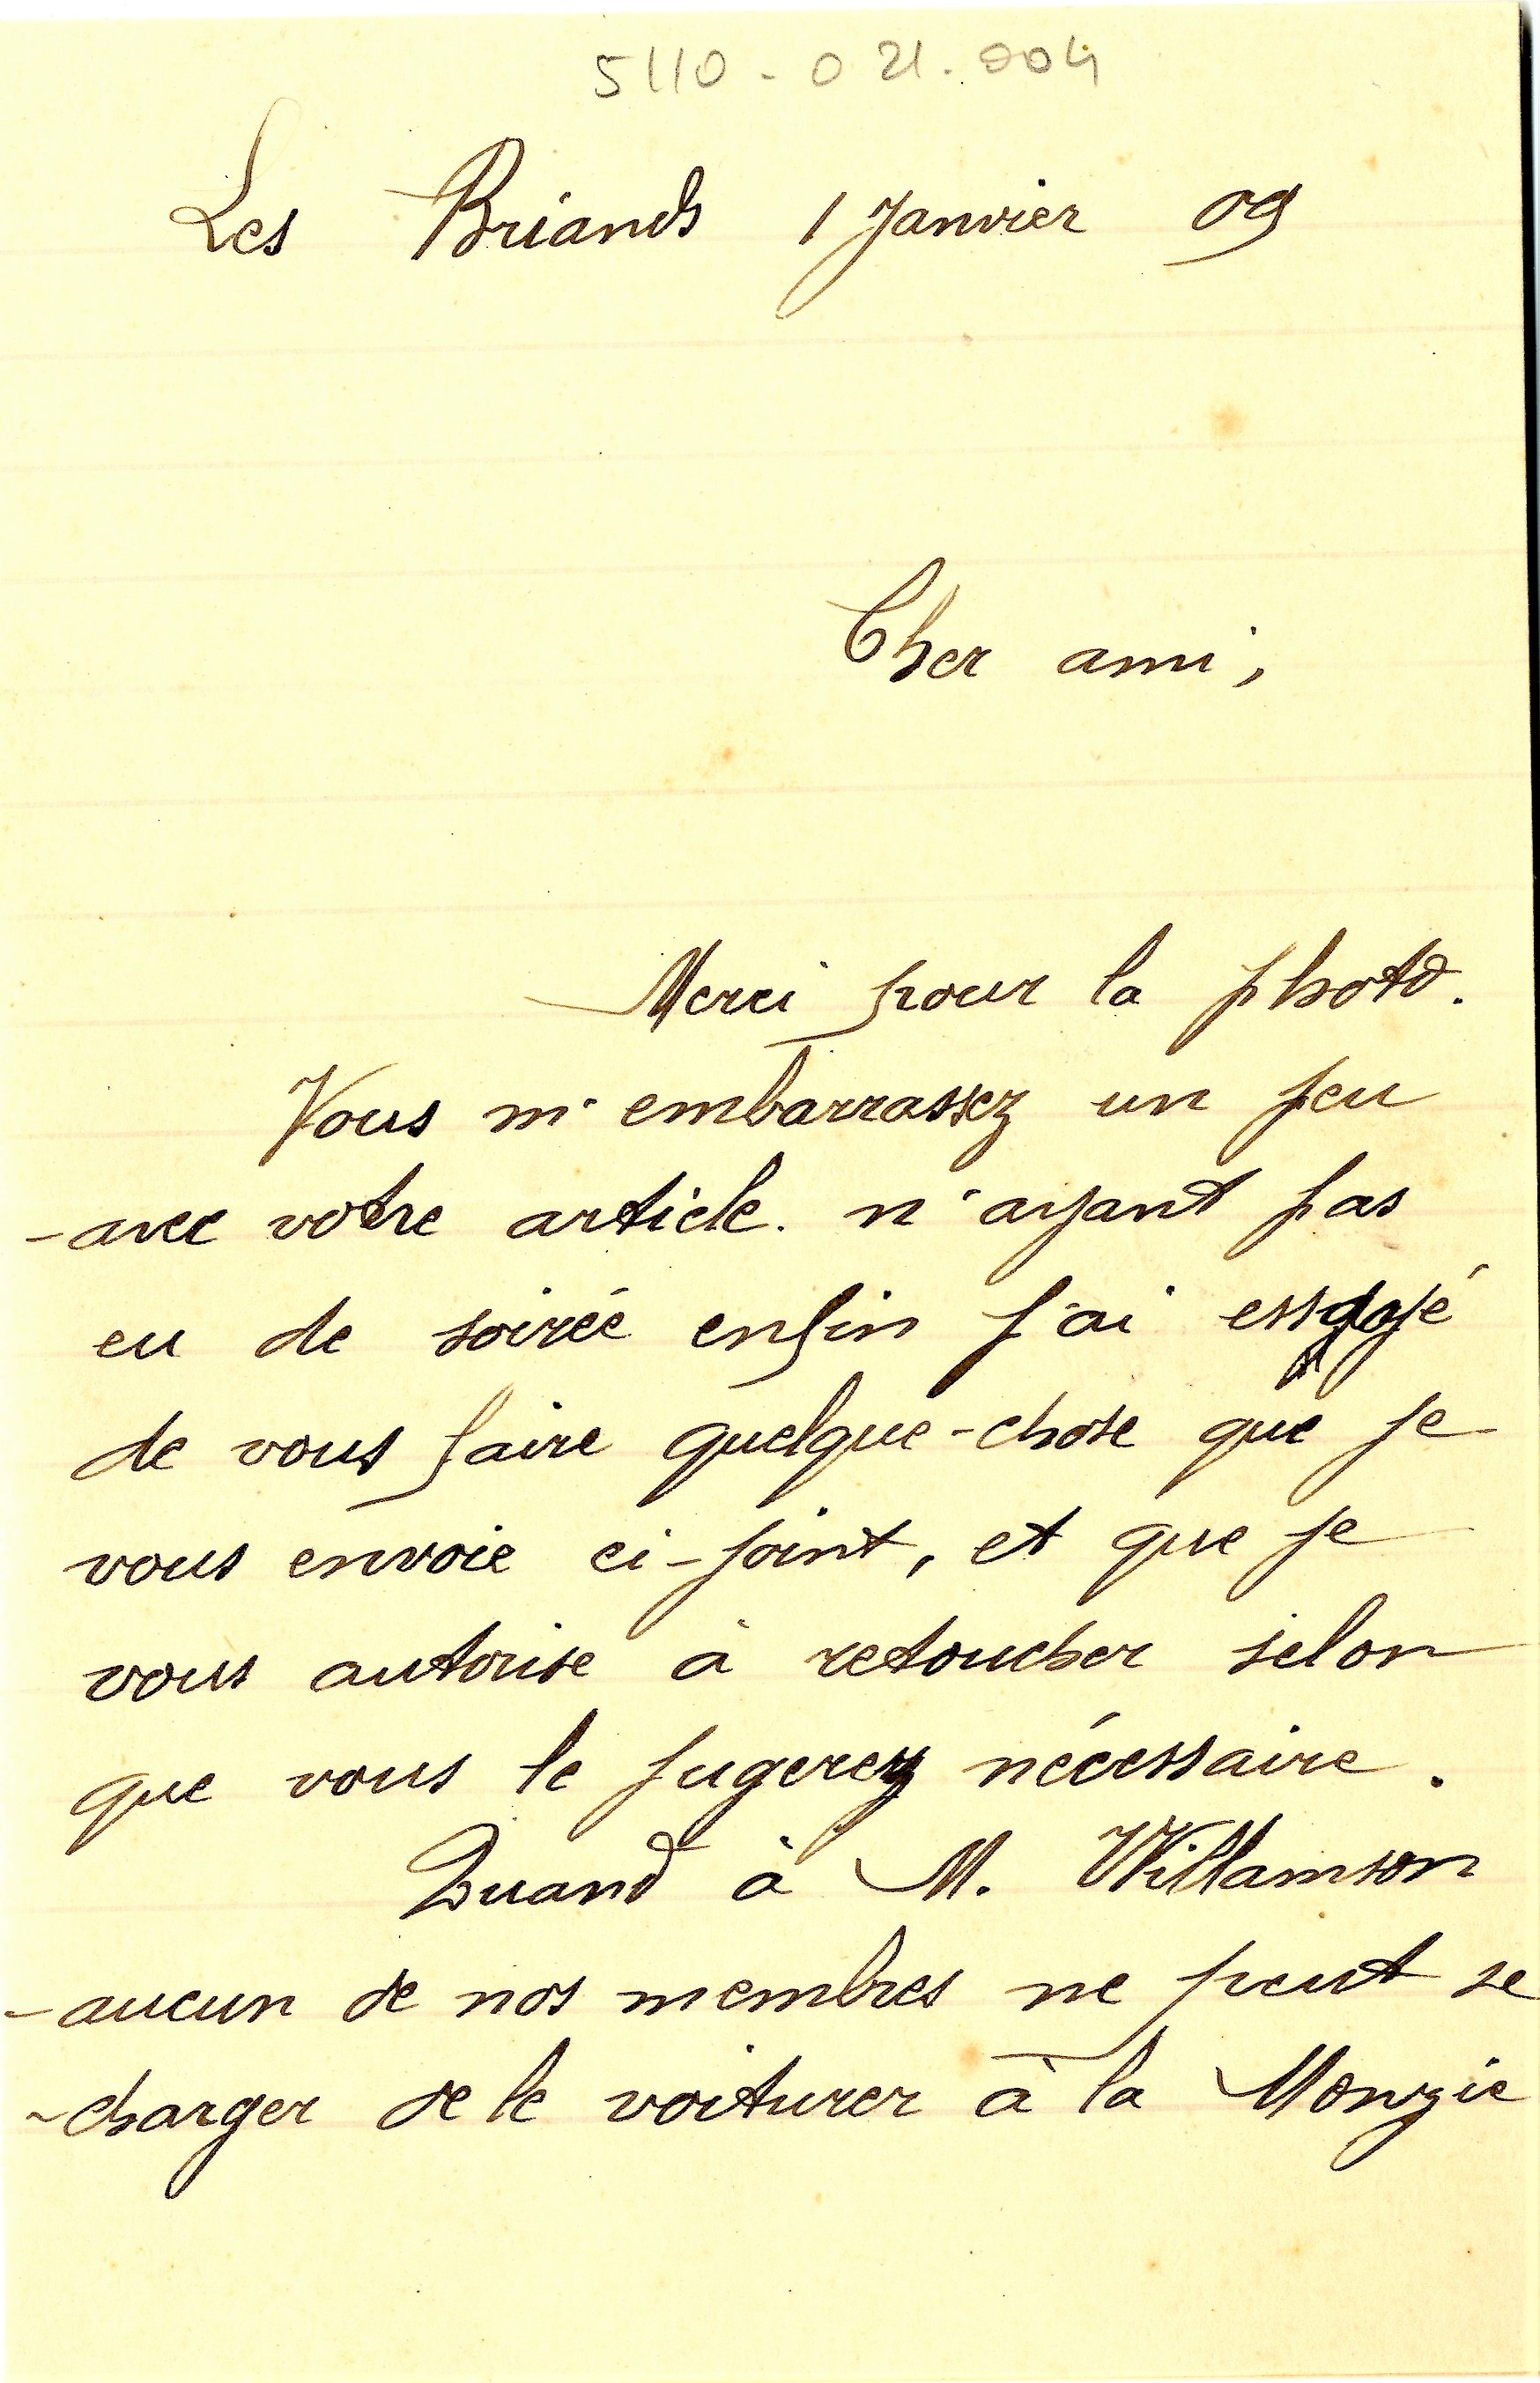 5110-021.004
Les Briands 1 Janvier 09
Cher ami,
Merci pour la photo.
Vous m'embarrassez un peu
avec votre article. n'ayant pas
eu de soirée enfin j'ai essayé
de vous faire quelque-chose que je
vous envoie ci-joint, et que je
vous autorise à retoucher selon
que vous le jugerez nécessaire.
Quand à M. Willamson
aucun de nos membres ne peut se
charger de le voiturer à la Monzie